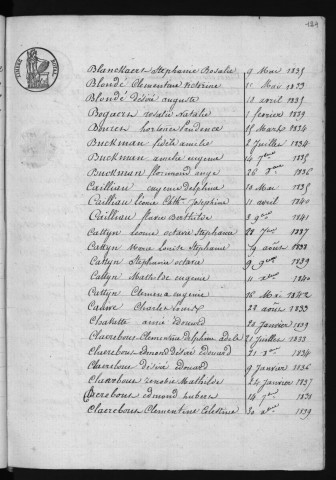 124
Blanckaert Stephanie Rosalie 9 Mai 1835
Blondé Clementine Victorine 11 Mai 1833
Blondé Désiré auguste 18 avril 1835
Bogaers rosalie Natalie 1 fevrier 1839
hortence prudence 15 Marks 1834
Buckman fidele amelie 2 Juillet 1834
Buckman amelie eugenie 14 7bre 1835
Buckman florimond ange 26 1836
Cailliau eugenie Delphine 10 Mai 1835
Cailliau leonie Cthne Josephine 11 avril 1840
Cailliau flavie Barthilde 3 9bre 1841
Cattyn leonie octavie Stephanie 28 1837
Cattyn Marie Louise Stephanie 29 aout 1838
Cattyn Stephanie octavie 9 9bre 1839
Cattyn Mathilde eugenie 11 Xbre 1840
Cattyn Clemence eugenie 16 Mai 1842
Cauwe Charles Louis 22 aout 1833
Edouard 28 Janvier 1839
Claerebous Clementine delphine adele 21 Juillet 1833
Claerebous edmond désiré edouard 21 1834
Claerebous desiré edouard 9 Janvier 1836
Claerebous zenobie Mathilde 24 Janvier 1837
Claerebous edmond hubert 14 7bre 1838
Claerebous Clementine Celestine 30 1839